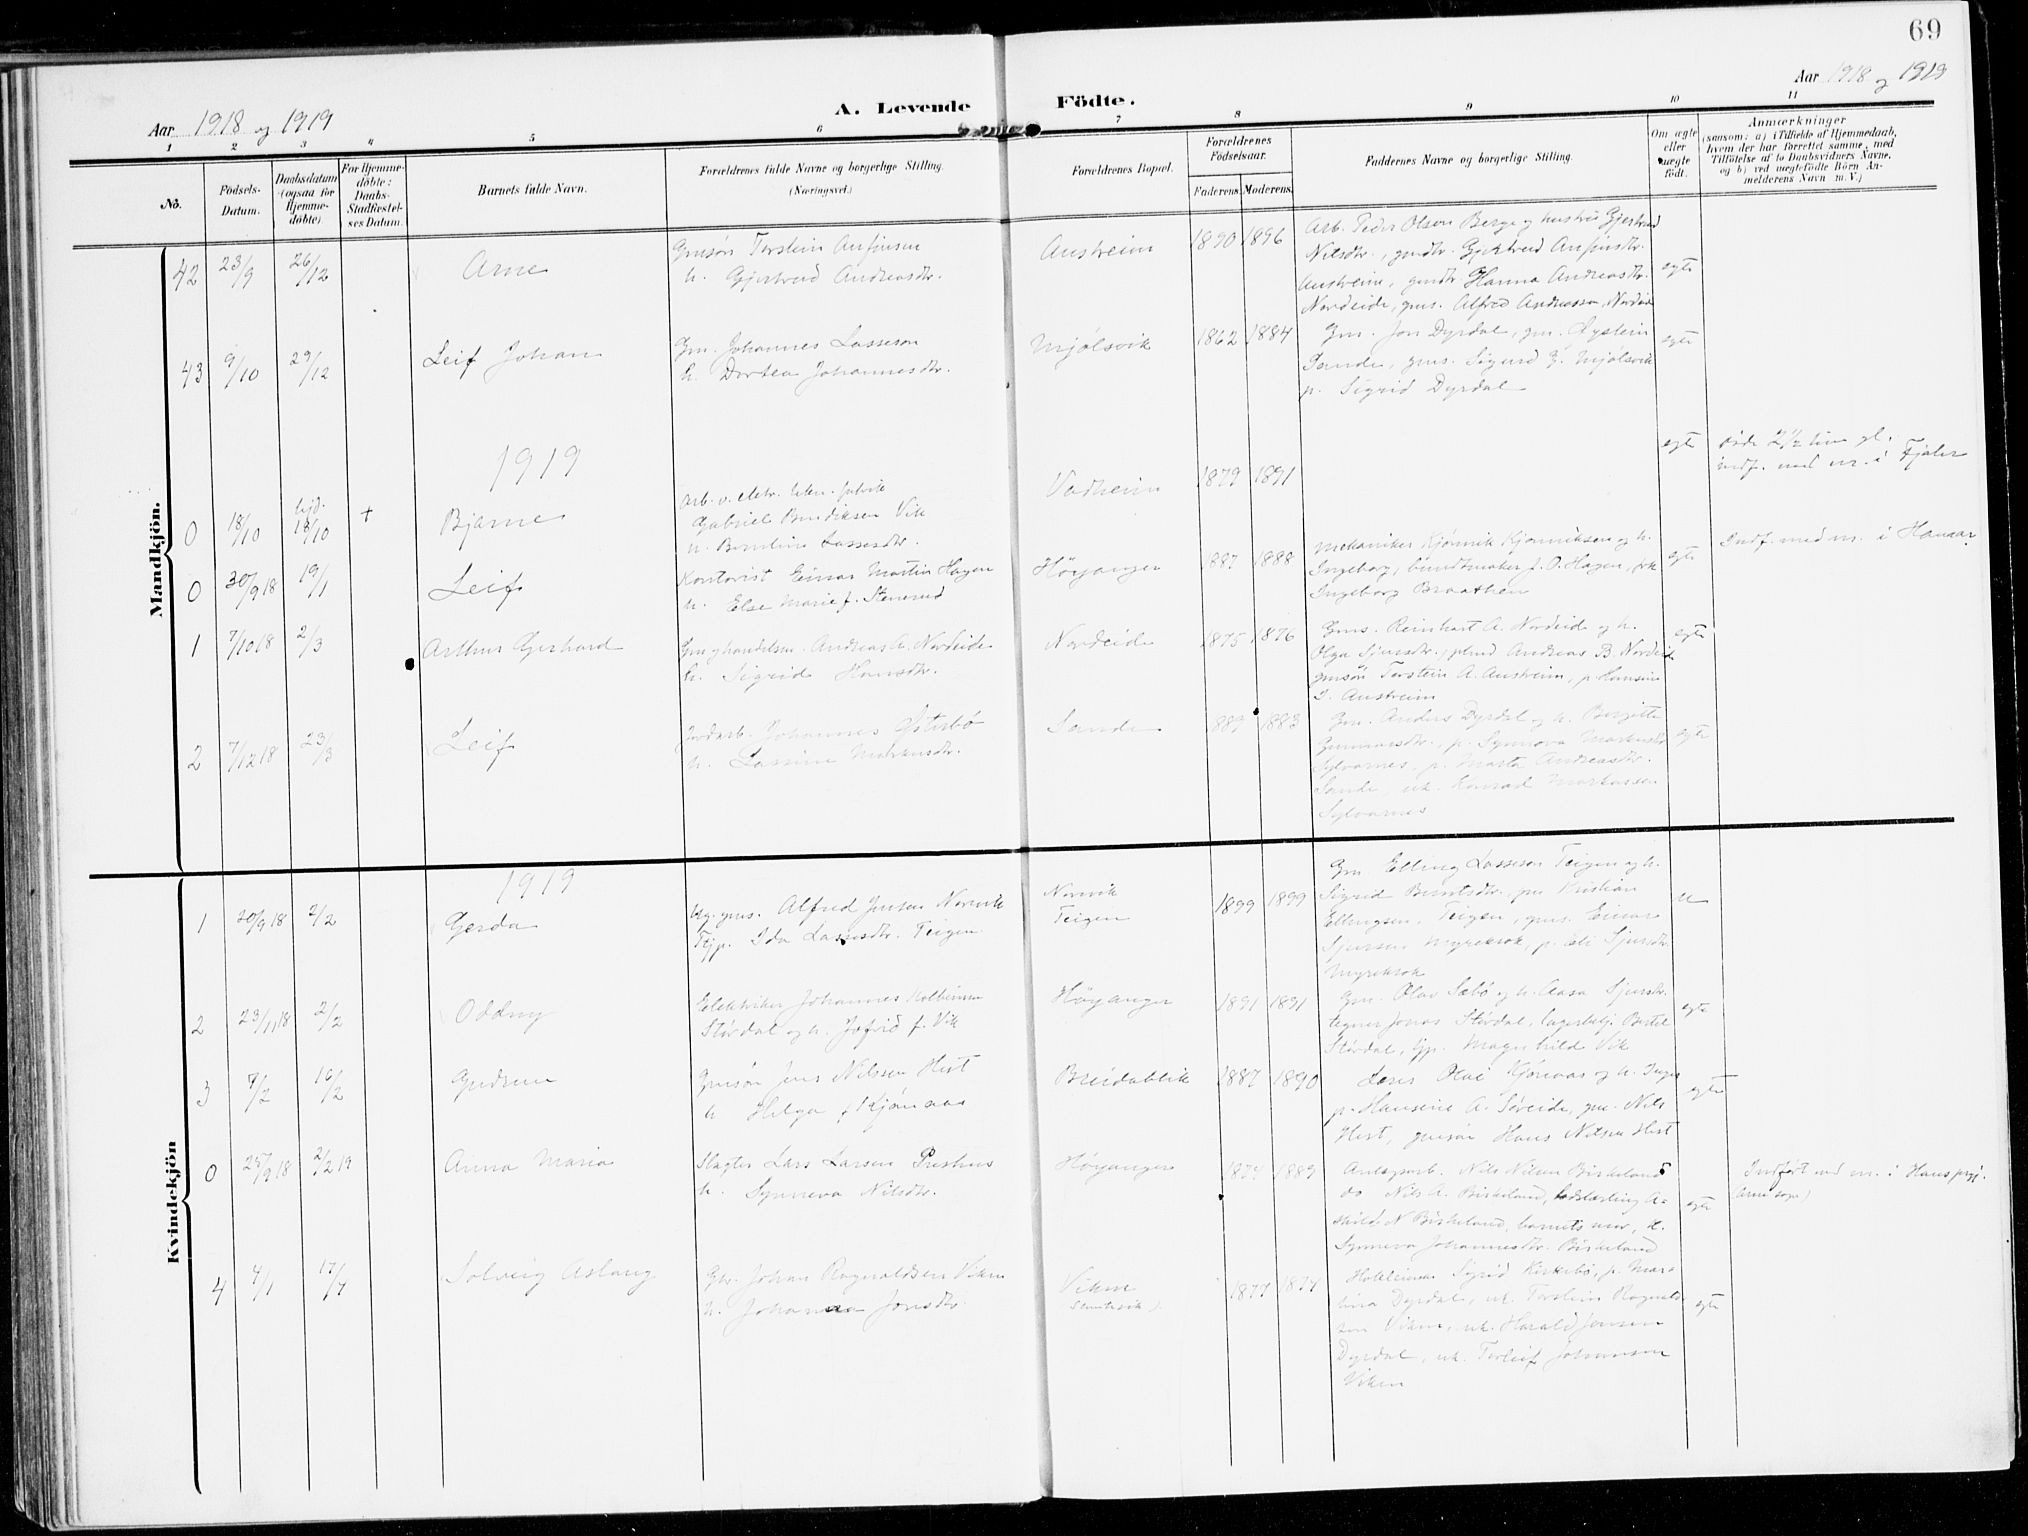 69
Aar 1918 og 1919
A. Levende Födte.
Aar 1918 og 1919
1 2 3 4 5 6 7 8 9 10 11
No.
Födsels-
Datum.
Daabsdatum
(ogsaa for
Hjemme-
döbte)
For Hjemme-
döbte:
Daabs-
Stadfæstel-
ses Datum.
Barnets fulde Navn.
Forældrenes fulde Navne og borgerlige Stilling.
(Næringsvei.)
Forældrenes Bopæl.
Forældrenes
Födselsaar.
Faderens. Moderens.
Faddernes Navne og borgerlige Stilling.
Om ægte
eller
uægte
födt.
Anmærkninger
(saasom: a) i Tilfælde af Hjemmedaab,
hvem der har forrettet samme, med
Tilföielse af to Daabsvidners Navne,
og b) ved uægtefödte Börn An-
melderens Navn m. V.)
Mandkjön.
42 23/9 26/12 Arne
Gmsøn Torstein Anfinsen
h. Gjertrud Andreasdtr.
Austreim 1890 1896
Arb. Peder Olsen Berge og hustru Gjertrud
Nilsdtr., gmdtr. Gjertrud Anfinsdtr.
Austreim, gmdtr Hanna Andreasdtr.
Nordeide, gms. Alfred Andreassen Nordeide
egte
43 9/10 29/12 Leif Johan
Gm. Johannes Lasseson
h. Dortea Johannesdtr.
Mjølsvik 1862 1884
Gm. Jon Dyrdal, gm. Øystein
Sande, gms. Sigurd J. Mjølsvik
p. Sigrid Dyrdal
egte
1919
0 18/10 hjd. 18/10 + Bjarne
Gabriel Bendiksen Vik
h. Bendine Lassesdtr.
Vadheim 1879 1891
egte
døde 2 1/2 time gl.
indf. med nr. i Fjaler
0 30/9 18 19/1 Leif
Kontorist Einar Martin Hagen
h. Else Marie f. Stenerud
Höyanger 1887 1888
Mekaniker Kjønnik Kjønniksen og h.
Ingeborg, bundtmaker J. O. Hagen, frk
Ingeborg Braathen
egte
Indf. med nr. i Hamar
1 7/10 18 2/3 Arthur Gerhard
Gm og handelsm. Andreas A. Nordeide
h. Sigrid Hansdtr.
Nordeide 1875 1876
Gms. Reinhart A. Nordeide og h.
Olga Sjursdtr., Andreas B. Nordeide
gmsøn Torstein A. Austreim, p. Hansine
J. Austreim
egte
2 7/12 18 23/3 Leif
Jordarb. Johannes Østerbö
h. Lassine Markusdtr.
Sande 1889 1883
Gm. Anders Dyrdal og h. Bergitte
Gunnarsdtr., p. Synnøva Markusdtr
Sylvarnes, p. Marta Andreasdtr.
Sande, uk. Konrad Markussen
Sylvarnes
egte
Kvindekjön
1919
1 20/9 18 2/2 Gerda
Ug. gms. Alfred Jensen Norevik
Tjp. Ida Lassesdtr. Teigen
Norevik
Teigen
1899 1899
Gm. Elling Lasseson Teigen og h.
Sigrid Berntsdtr., gm Kristian
Ellingsen Teigen, gms. Einar
Sjursen Myreksok, p. Eli Sjursdtr.
Myreksok
u
2 23/11 18 2/2 Oddny
Elektriker Johannes Kolbeinsen
Størdal og h. Jofrid f. Vik
Höyanger 1891 1891
Gm. Olav Sæbö og h. Aasa Sjursdtr.
tegner Jonas Størdal, lagerbetj. Bertel
Størdal, tjp. Magnhild Vik
egte
3 7/2 16/2 Gudrun
Gmsøn Jens Nilssen Hest
h. Helga f Kjönaas
Breidablik 1887 1890
Læser Olai Kjönaas og h. Inga
p. Hansine A. Søreide, gm. Nils
Hest, gmsøn Hans Nilsen Hest
egte
0 25/9 18 2/2 19 Anna Maria
Slagter Lars Larsen Presthus
h. Synneva Nilsdtr.
Höyanger 1874 1889
Anlægsarb. Nils Nilsen Birkeland
do Nils A. Birkeland,
N Birkeland, barnets mor, h.
Synneva Johannesdtr. Birkeland
egte
Indført med nr. i Haus prgj.
(Arne sogn)
4 4/1 17/7 Solveig Aslaug
Gbr. Johan Ragnaldsen Viken
h. Johanna Jonsdtr.
Viken
1877 1877
Hoteleierske Sigrid Kirkebö, p. Mar-
tina Dyrdal, uk. Torstein Ragnald-
sen Viken, uk. Harald Jensen
Dyrdal, uk. Torleif Johansen
Viken
egte